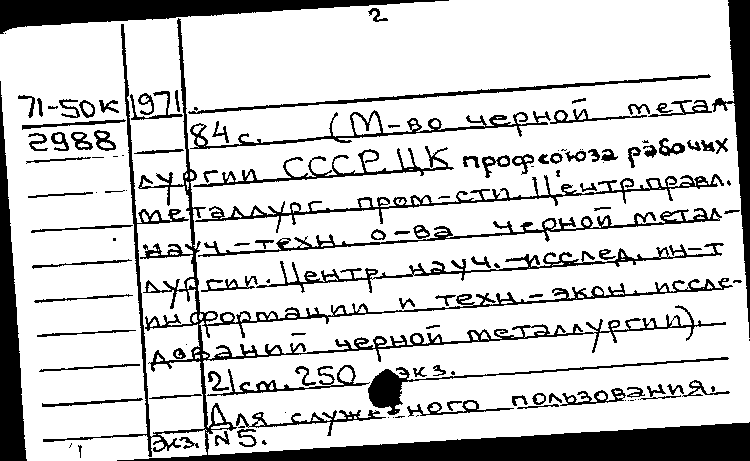 2
71-50к 1971.
2988 84 с. (М-во черной метал-
лургии СССР. ЦК профсоюза рабочих
металлург. пром-сти. Центр. правл.
науч.-техн. о-ва черной метал-
лургии. Центр. науч.-исслед. ин-т
информации и техн.-экон. иссле-
дований черной металлургии).
21 см. 250 экз.
Для служебного пользования.
Экз. №5.